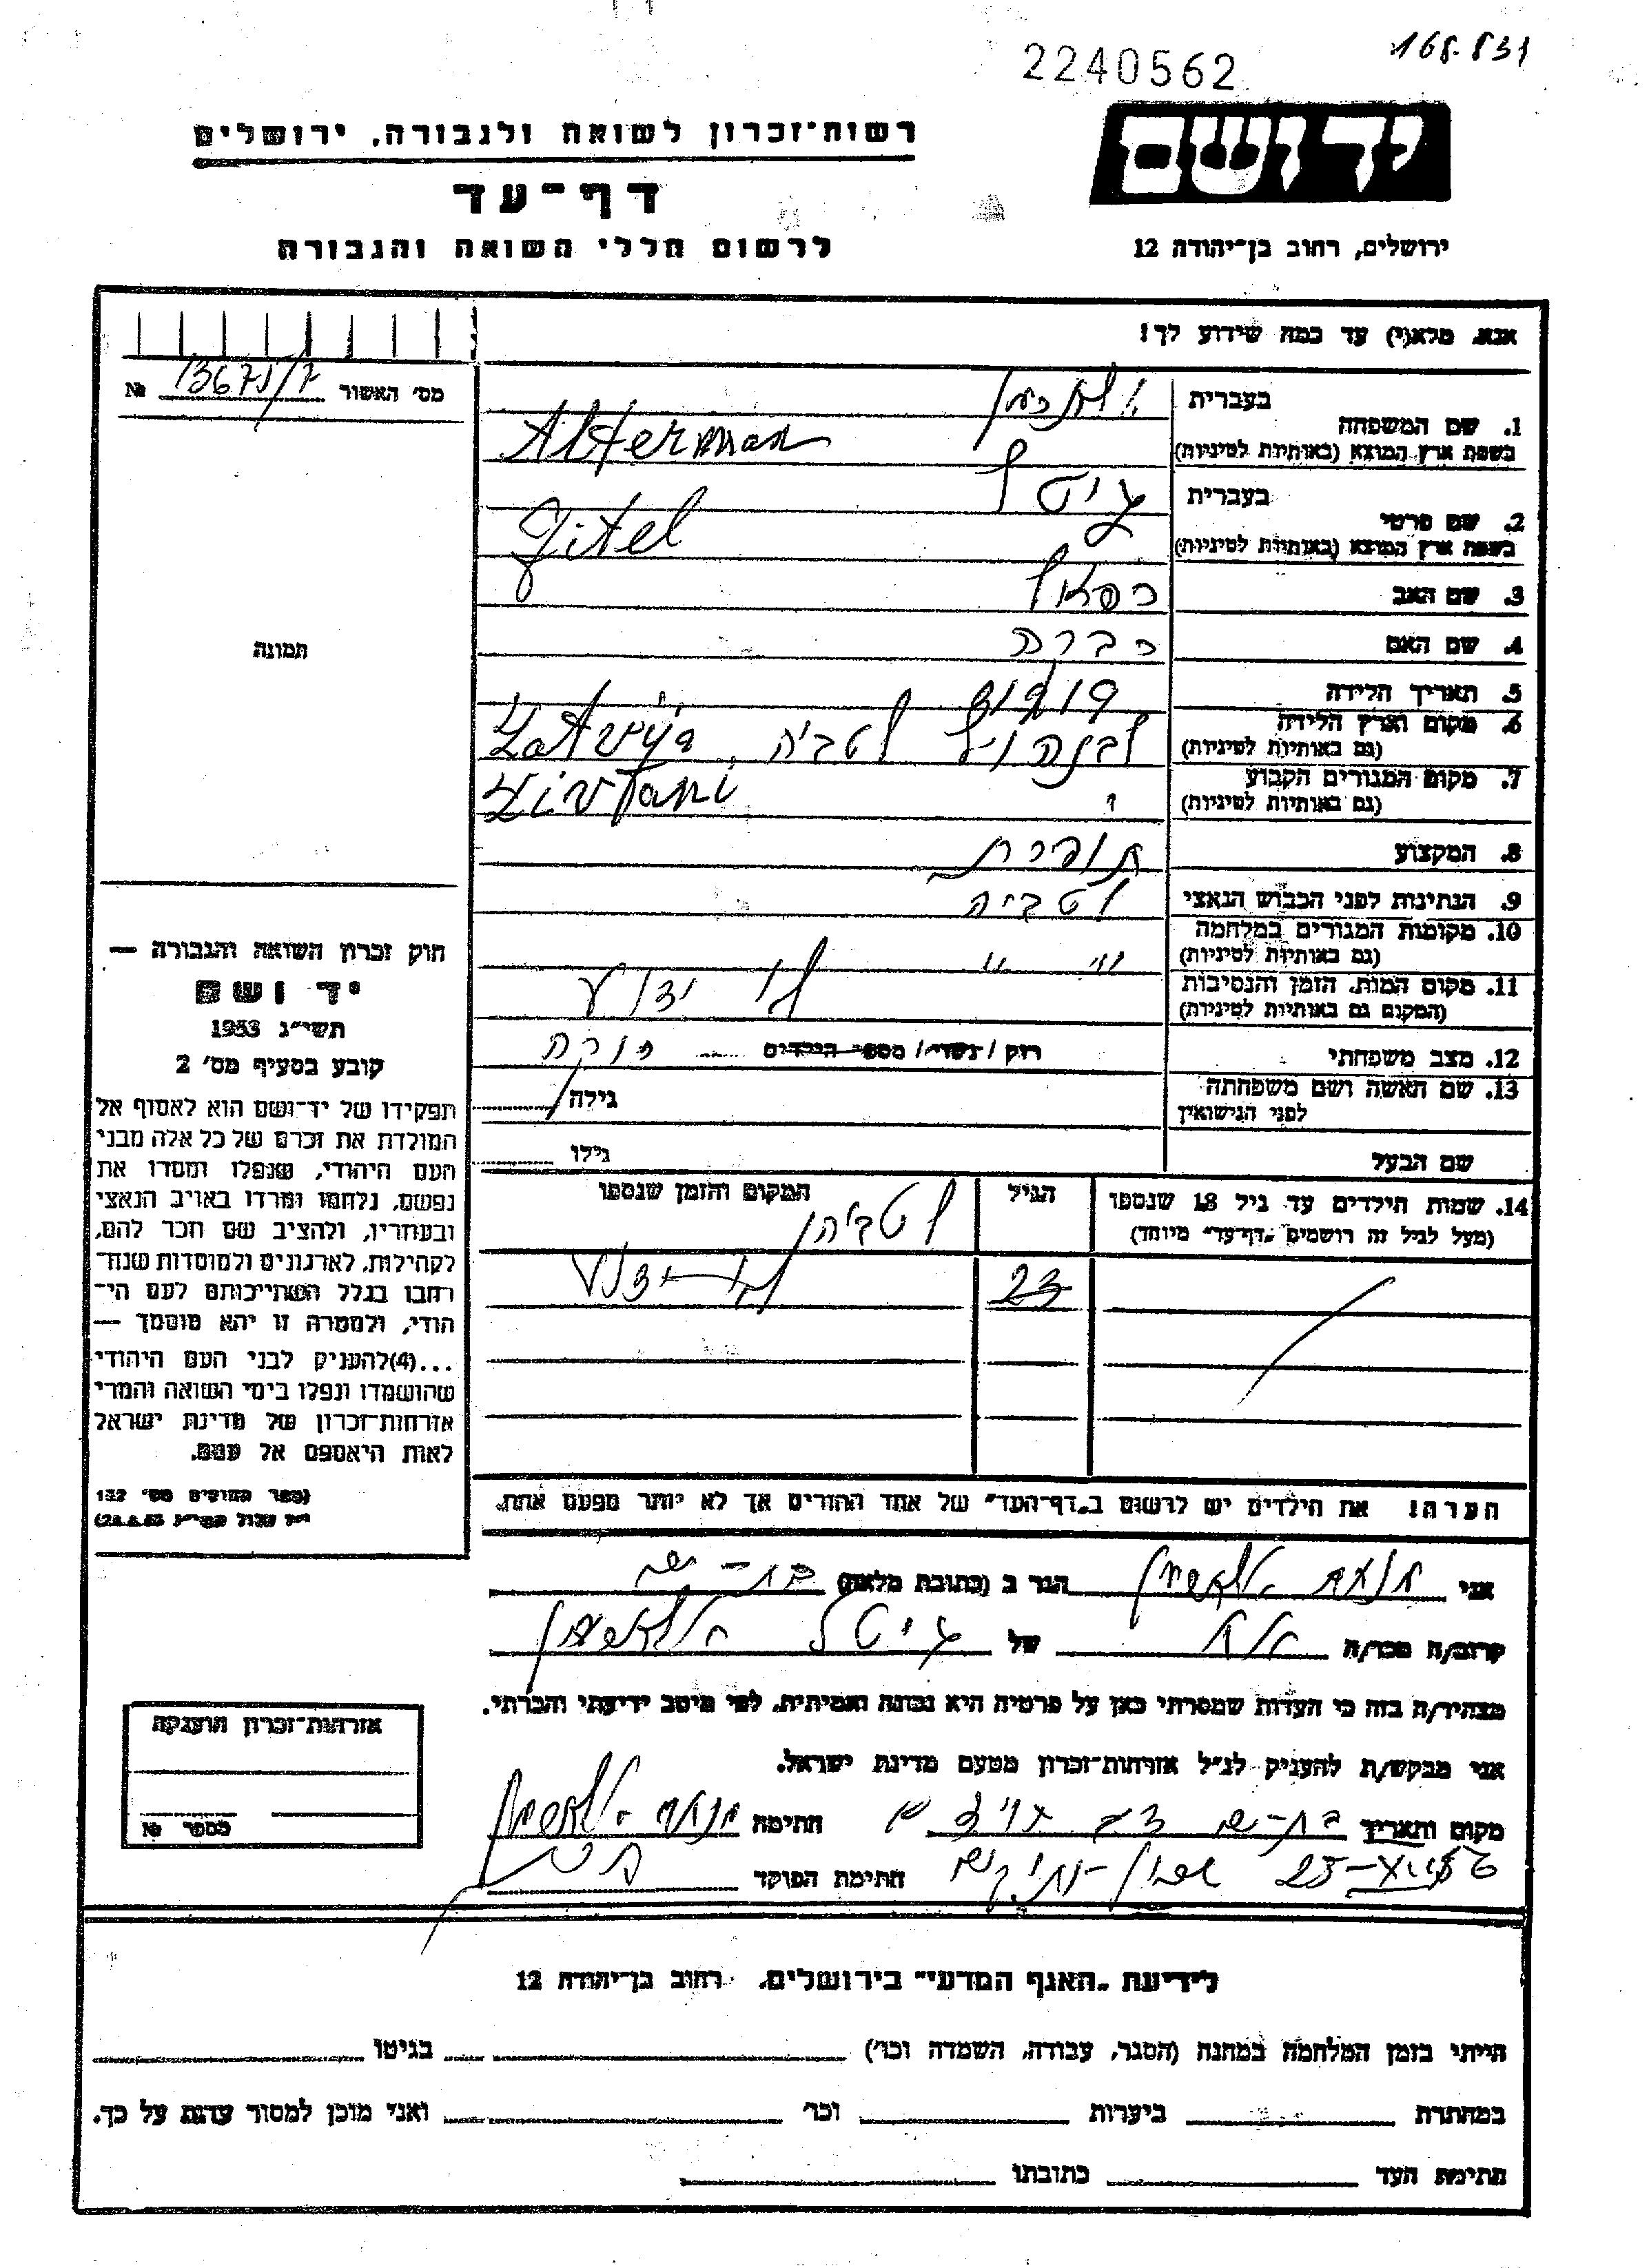 2240562
168.831
רשות־זכרון לשואה ולגבורה, ירושלים
יד ושם
דף־עד
לרשום חללי השואה והגבורה
ירושלים, רחוב בן־יהודה 12
אנא, מלא(י) עד כמה שידוע לך!
מס׳ האשור 13675/7 №
תמונה
1. שם המשפחה
בעברית אלתרמן
בשפת ארץ המוצא (באותיות לטיניות) Alterman
2. שם פרטי
בעברית גיטל
בשפת ארץ המוצא (באותיות לטיניות) Gitel
3. שם האב רפאל
4. שם האם
5. תאריך הלידה
6. מקום וארץ הלידה לטביה, Latvija
(גם באותיות לטיניות)
7. מקום המגורים הקבוע Livtani
(גם באותיות לטיניות)
8. המקצוע תופרת
9. הנתינות לפני הכבוש הנאצי לטביה
10. מקומות המגורים במלחמה
(גם באותיות לטיניות) " "
11. מקום המות, הזמן והנסיבות לא ידוע
(המקום גם באותיות לטיניות)
12. מצב משפחתי רוק / נשוי / מספר הילדים רוקה
13. שם האשה ושם משפחתה גילה
לפני הנישואין
שם הבעל גילו
14. שמות הילדים עד גיל 18 שנספו הגיל המקום והזמן שנספו
(מעל לגיל זה רושמים „דף־עד״ מיוחד) לטביה
23 לא ידוע
הערה! את הילדים יש לרשום ב„דף־העד״ של אחד ההורים אך לא יותר מפעם אחת.
חוק זכרון השואה והגבורה —
יד ושם
תשי״ג 1953
קובע בסעיף מס׳ 2
תפקידו של יד־ושם הוא לאסוף אל
המולדת את זכרם של כל אלה מבני
העם היהודי, שנפלו ומסרו את
נפשם, נלחמו ומרדו באויב הנאצי
ובעוזריו, ולהציב שם וזכר להם,
לקהילות, לארגונים ולמוסדות שנח־
רחבו בגלל השתייכותם לעם הי־
הודי, ולמטרה זו יהא מוסמך —
...(4) להעניק לבני העם היהודי
שהושמדו ונפלו בימי השואה והמרי
אזרחות־זכרון של מדינת ישראל
לאות היאספם אל עמם.
(ספר החוקים מס׳ 132
י״ז אלול תשי״ג 28.8.53)
אני אלתרמן הגר ב (כתובת מלאה) בת-ים
קרוב/ה מכר/ה אח של גיטל אלתרמן
מצהיר/ה בזה כי העדות שמסרתי כאן על פרטיה היא נכונה ואמיתית, לפי מיטב ידיעתי והכרתי.
אני מבקש/ת להעניק לנ״ל אזרחות־זכרון מטעם מדינת ישראל.
מקום ותאריך בת-ים חתימה אלתרמן
חתימת הפוקד
אזרחות־זכרון הוענקה
מספר №
לידיעת „האגף המדעי״ בירושלים, רחוב בן־יהודה 12
הייתי בזמן המלחמה במחנה (הסגר, עבודה, השמדה וכו׳) בגיטו
במחתרת ביערות וכו׳ ואני מוכן למסור עדות על כך.
חתימת העד כתובתו